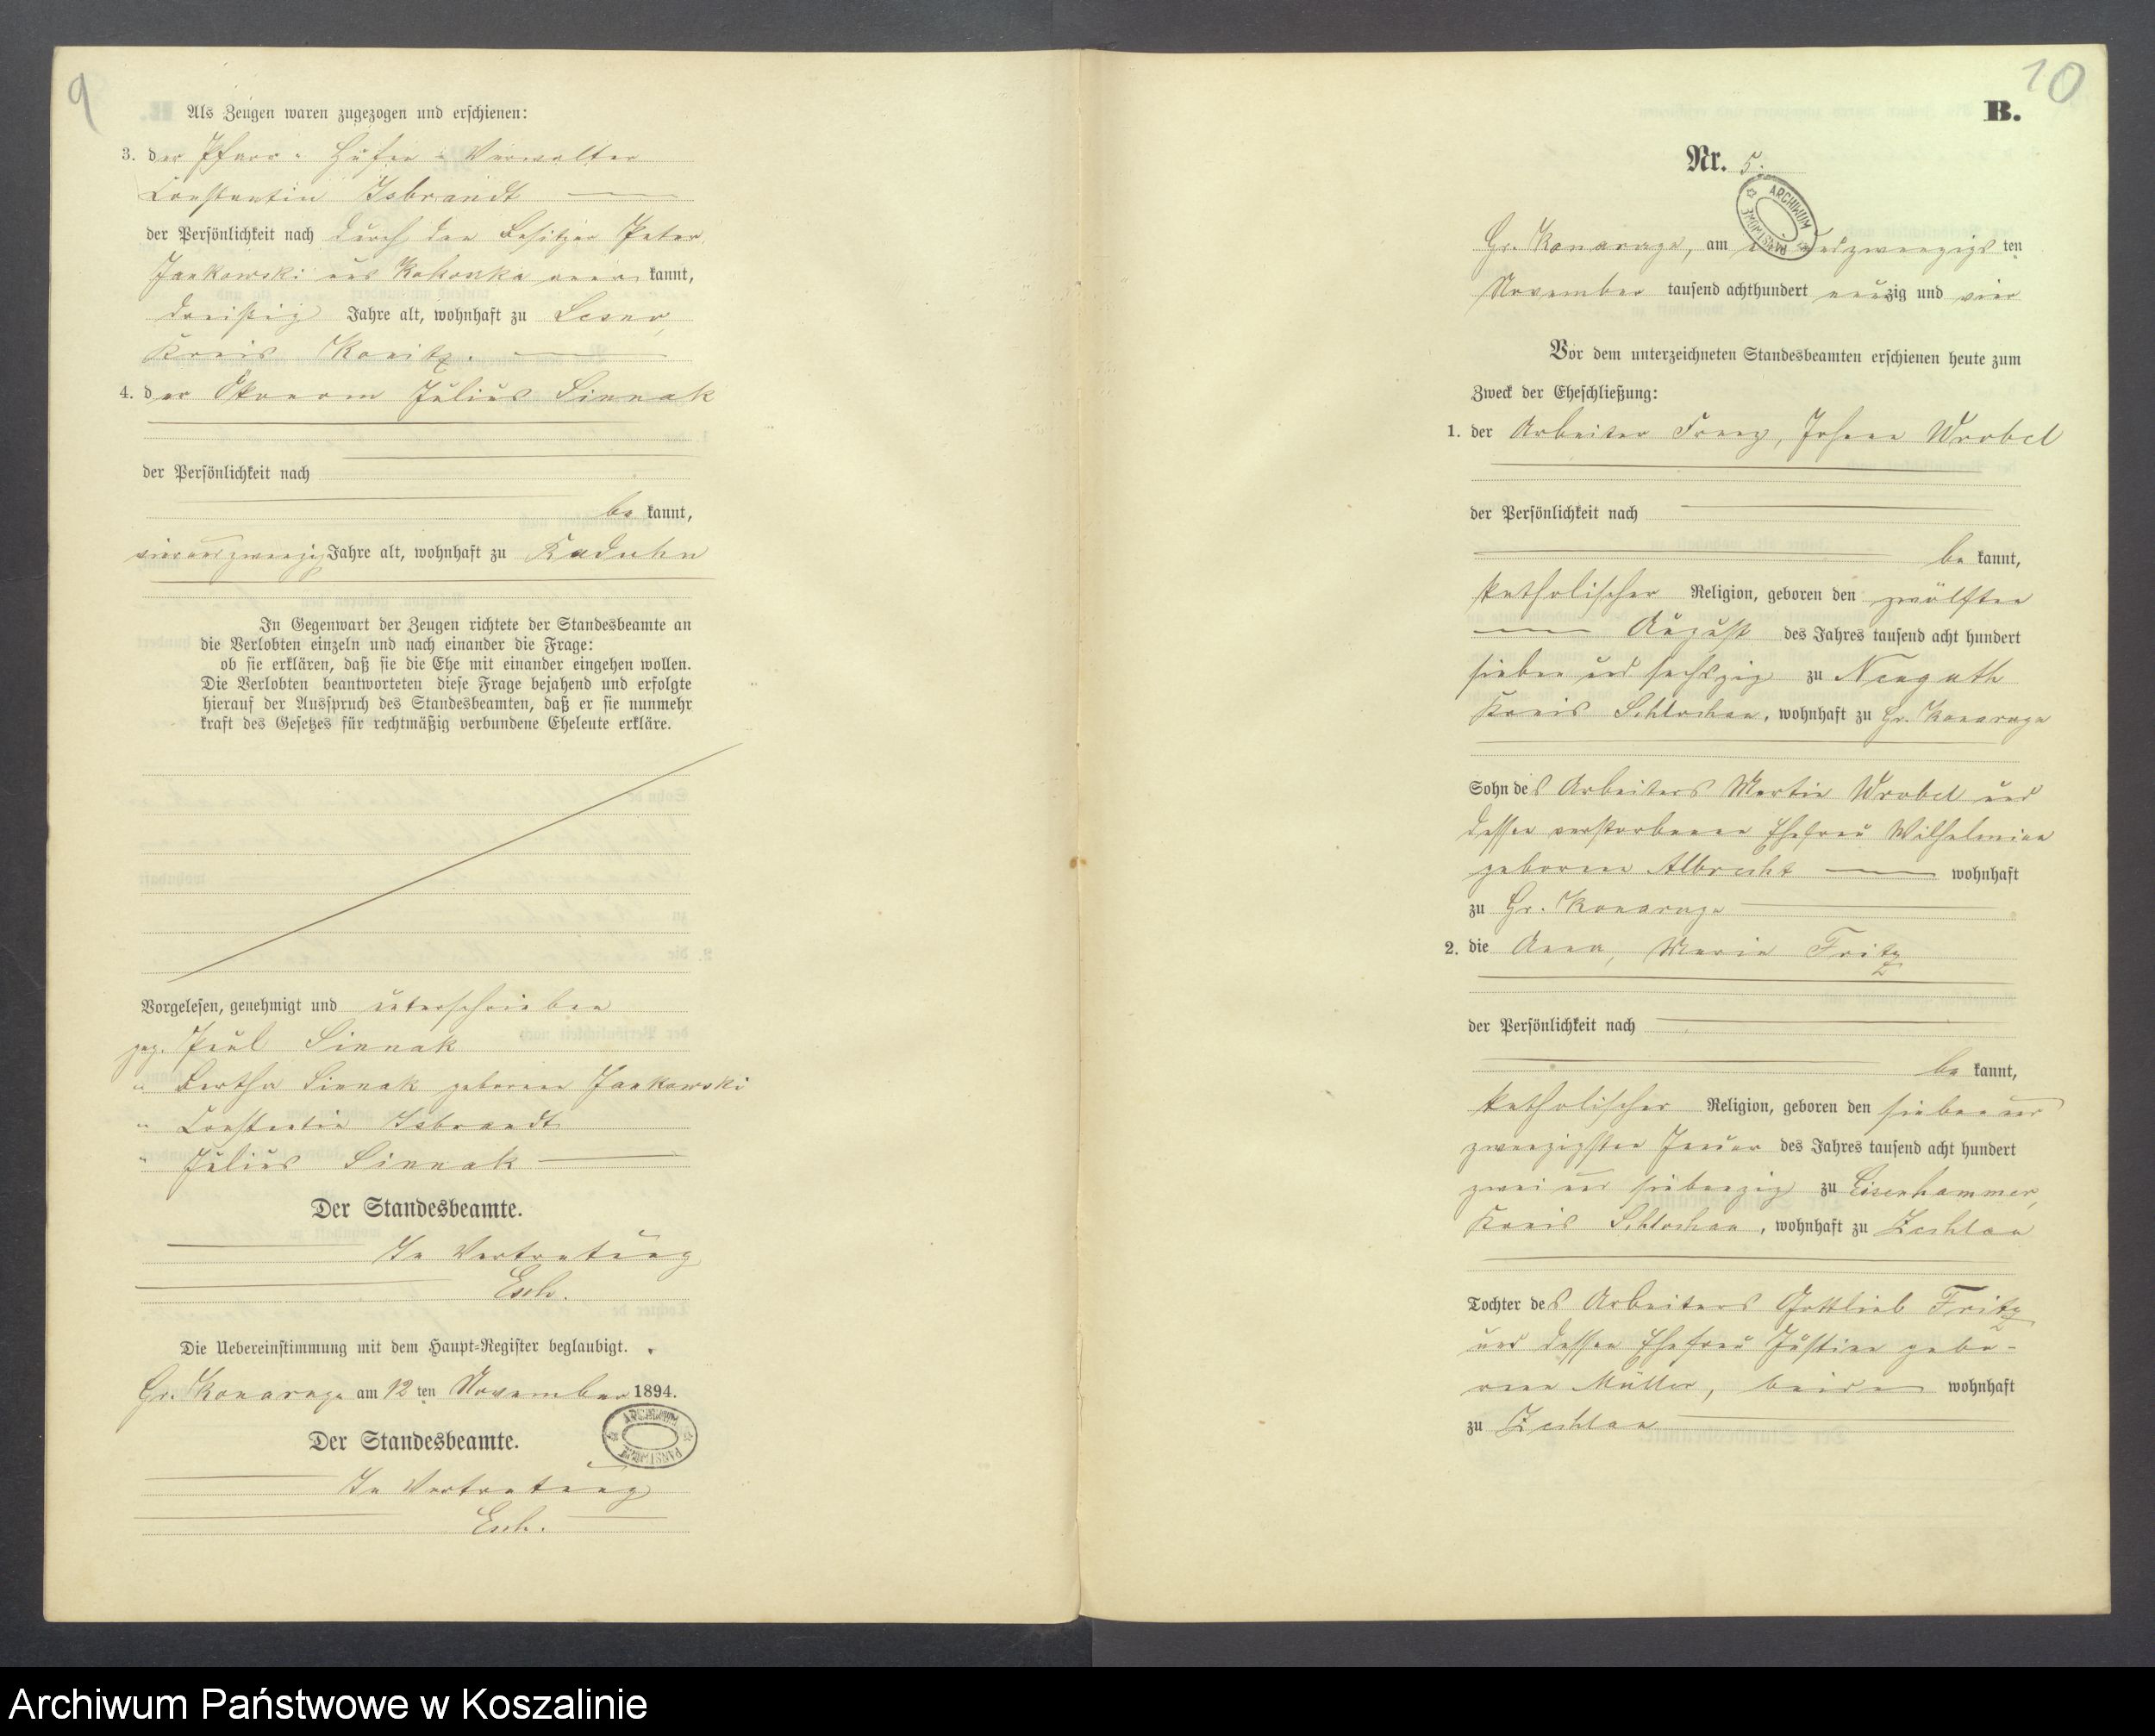 9
Als Zeugen waren zugezogen und erschienen:
3. der Pfarr-Hufen-Verwalter
Constantin Isbrandt
der Persönlichkeit nach durch den Besitzer Peter
Jankowski aus aner kannt,
dreißig Jahre alt, wohnhaft zu Lesno,
Kreis Konitz.
4. der Ökonom Julius Sinnak
der Persönlichkeit nach
be kannt,
vierundzwanzig Jahre alt, wohnhaft zu Kaduhn
In Gegenwart der Zeugen richtete der Standesbeamte an
die Verlobten einzeln und nach einander die Frage:
ob sie erklären, daß sie die Ehe mit einander eingehen wollen.
Die Verlobten beantworteten diese Frage bejahend und erfolgte
hierauf der Ausspruch des Standesbeamten, daß er sie nunmehr
kraft des Gesetzes für rechtmäßig verbundene Eheleute erkläre.
Vorgelesen, genehmigt und unterschrieben
gez. Paul Sinnak
" Bertha Sinnak geborene Jankowski
" Constantin Isbrandt
" Julius Sinnak
Der Standesbeamte.
In Vertretung
Esch.
Die Uebereinstimmung mit dem Haupt-Register beglaubigt.
Gr. Konarzyn am 12 ten November 1894.
Der Standesbeamte.
ARCHIWUM PAŃSTWOWE
In Vertretung
Esch.
10
B.
Nr. 5.
ARCHIWUM PAŃSTWOWE
Gr. Konarzyn, am undzwanzigs ten
November tausend achthundert neunzig und vier
Vor dem unterzeichneten Standesbeamten erschienen heute zum
Zweck der Eheschließung:
1. der Arbeiter Franz, Johann Wrobel
der Persönlichkeit nach
be kannt,
katholischer Religion, geboren den zwölften
August des Jahres tausend acht hundert
sieben und sechszig zu Neuguth
Kreis Schlochau, wohnhaft zu Gr. Konarzyn
Sohn des Arbeiters Martin Wrobel und
dessen verstorbenen Ehefrau Wilhelmine
geborene Albrecht wohnhaft
zu Gr. Konarzyn
2. die Anna, Marie Fritz
der Persönlichkeit nach
be kannt,
katholischer Religion, geboren den siebenund
zwanzigsten Januar des Jahres tausend acht hundert
zwei und siebenzig zu Eisenhammer,
Kreis Schlochau, wohnhaft zu Zechlau
Tochter des Arbeiters Gottlieb Fritz
und dessen Ehefrau Justine gebo-
rene Müller, beide wohnhaft
zu Zechlau
Archiwum Państwowe w Koszalinie